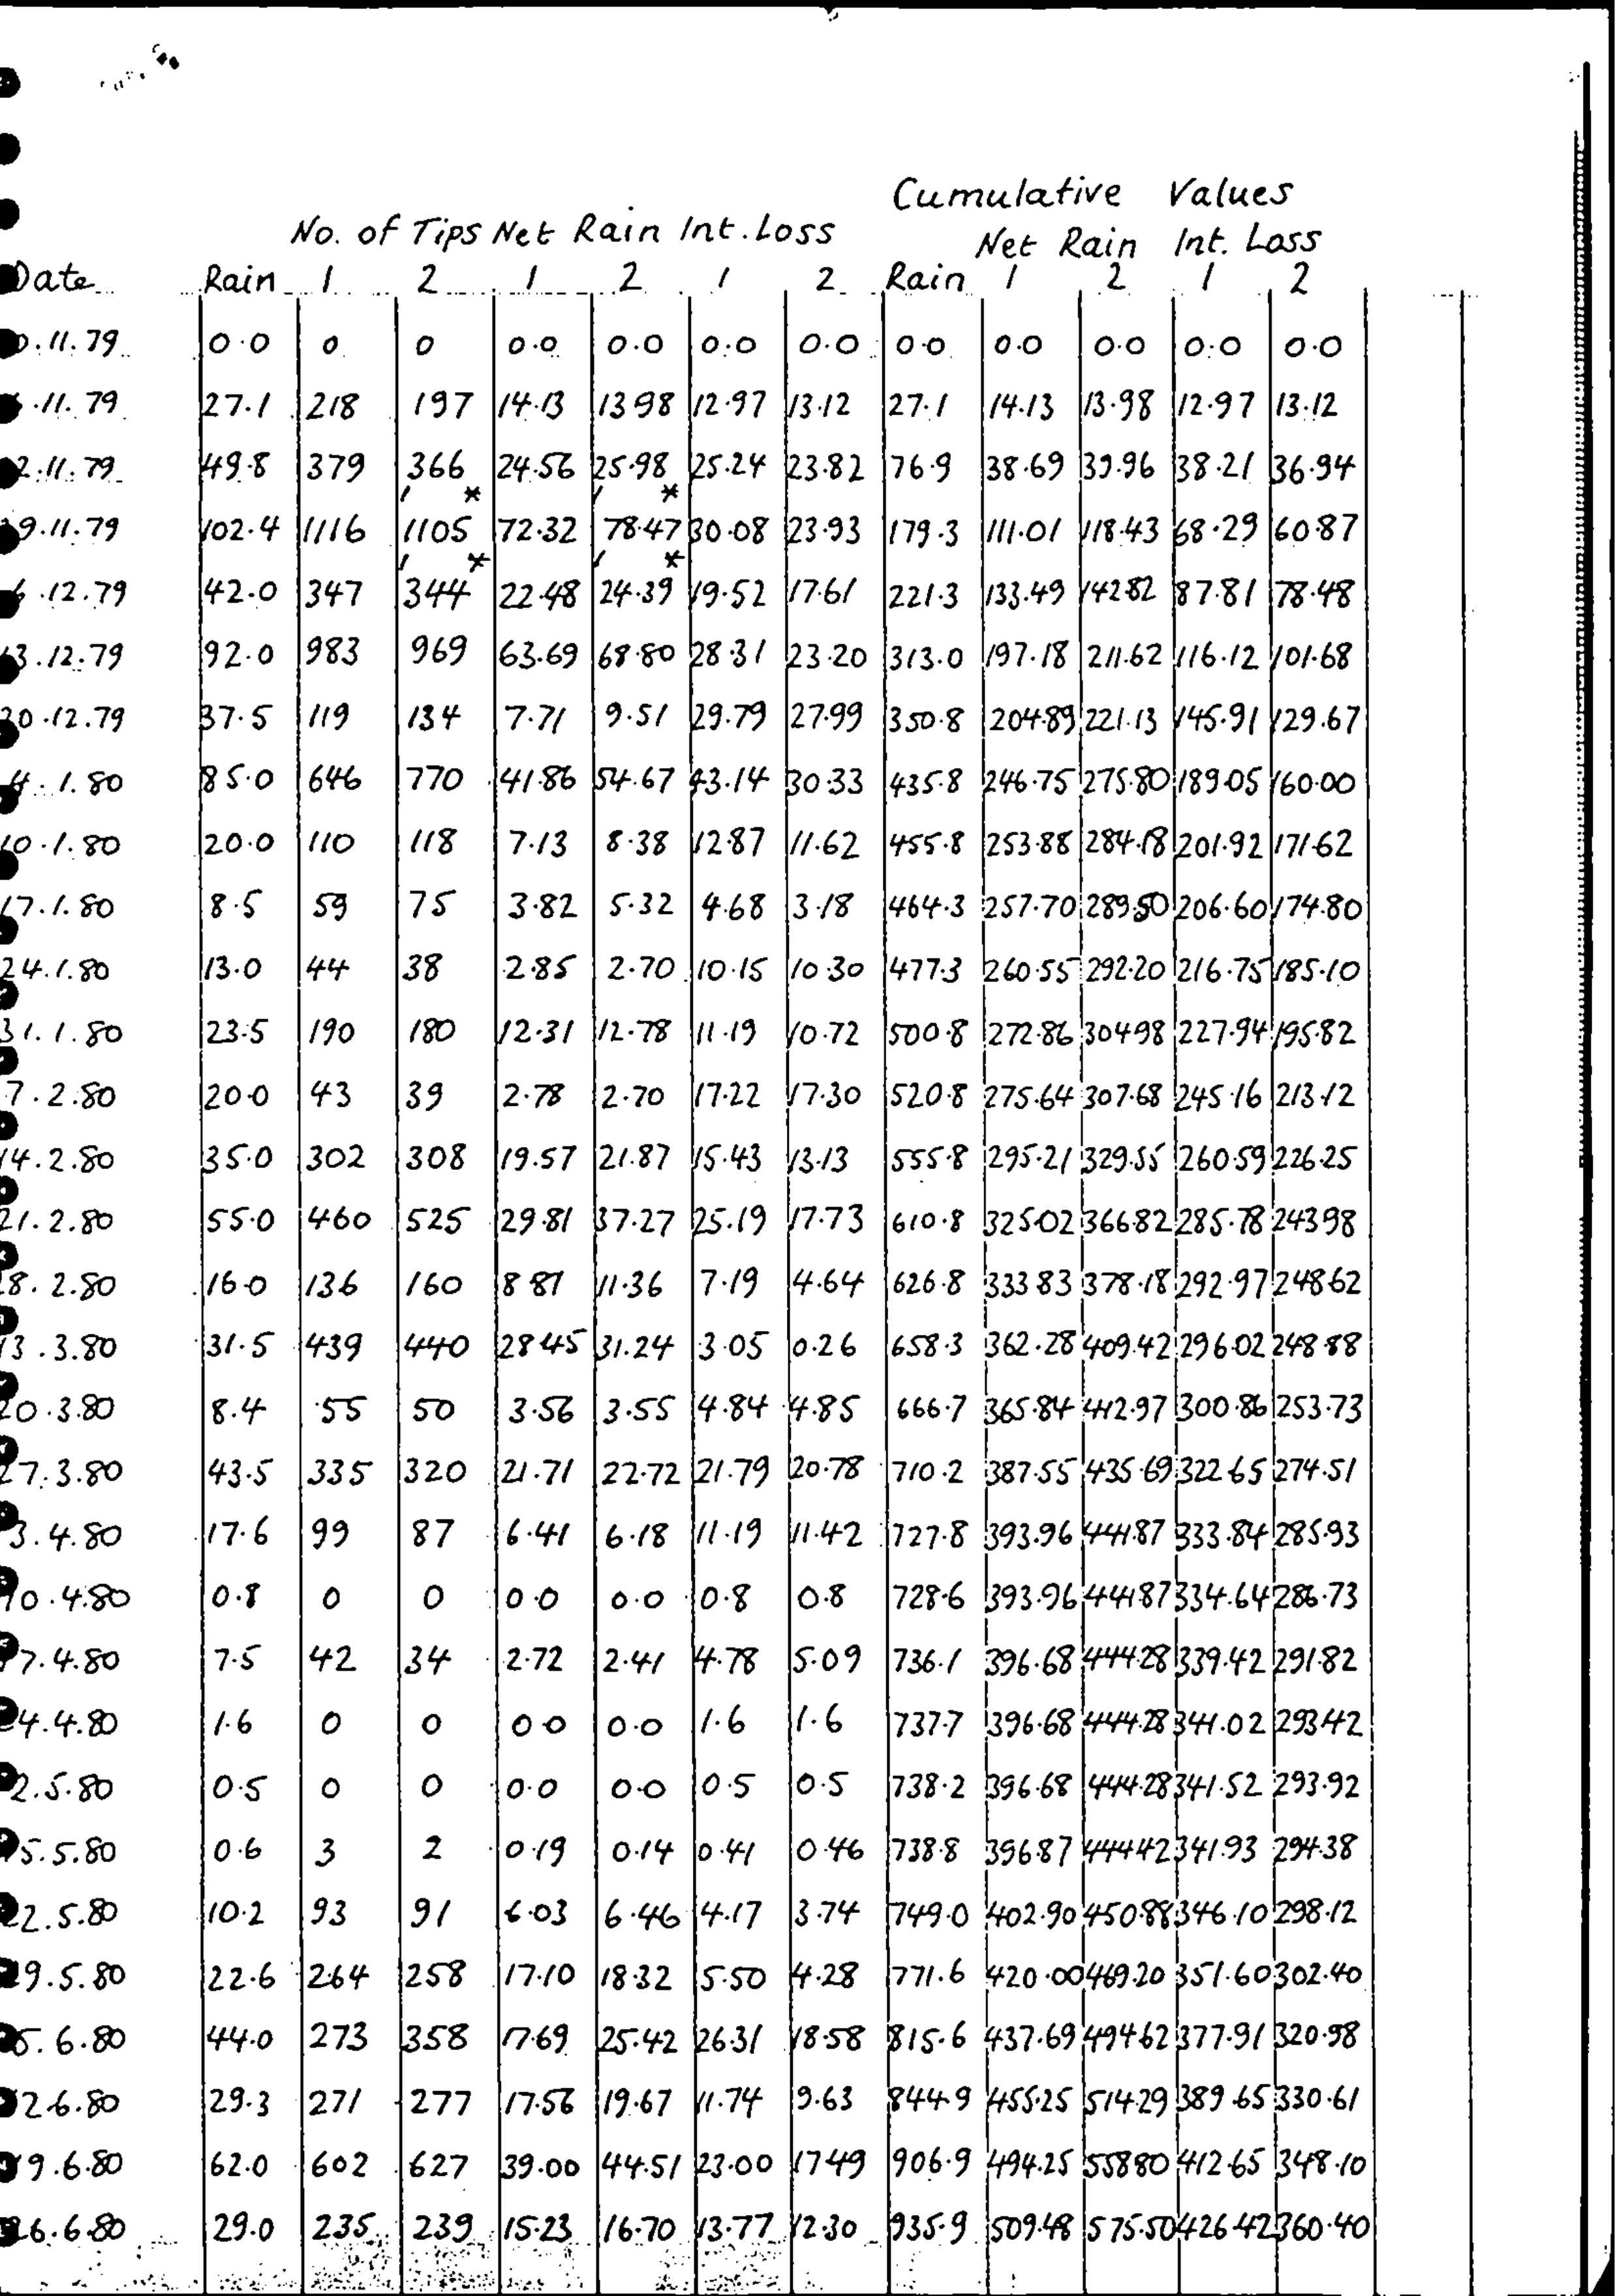 Cumulative Values
No. of Tips Net Rain Int. Loss Net Rain Int. Loss
Date Rain 1 2 1 2 1 2 Rain 1 2 1 2
0.11.79 0.0 0 0 0.0 0.0 0.0 0.0 0.0 0.0 0.0 0.0 0.0
.11.79 27.1 218 197 14.13 13.98 12.97 13.12 27.1 14.13 13.98 12.97 13.12
2.11.79 49.8 379 366 24.56 25.98 25.24 23.82 76.9 38.69 39.96 38.21 36.94
' * ' *
9.11.79 102.4 1116 1105 72.32 78.47 30.08 23.93 179.3 111.01 118.43 68.29 60.87
' * ' *
6.12.79 42.0 347 344 22.48 24.39 19.52 17.61 221.3 133.49 142.82 87.81 78.48
13.12.79 92.0 983 969 63.69 68.80 28.31 23.20 313.0 197.18 211.62 116.12 101.68
20.12.79 37.5 119 134 7.71 9.51 29.79 27.99 350.8 204.89 221.13 145.91 129.67
4.1.80 85.0 646 770 41.86 54.67 43.14 30.33 435.8 246.75 275.80 189.05 160.00
10.1.80 20.0 110 118 7.13 8.38 12.87 11.62 455.8 253.88 284.18 201.92 171.62
17.1.80 8.5 59 75 3.82 5.32 4.68 3.18 464.3 257.70 289.50 206.60 174.80
24.1.80 13.0 44 38 2.85 2.70 10.15 10.30 477.3 260.55 292.20 216.75 185.10
31.1.80 23.5 190 180 12.31 12.78 11.19 10.72 500.8 272.86 304.98 227.94 195.82
7.2.80 20.0 43 39 2.78 2.70 17.22 17.30 520.8 275.64 307.68 245.16 213.12
14.2.80 35.0 302 308 19.57 21.87 15.43 13.13 555.8 295.21 329.55 260.59 226.25
21.2.80 55.0 460 525 29.81 37.27 25.19 17.73 610.8 325.02 366.82 285.78 243.98
28.2.80 16.0 136 160 8.81 11.36 7.19 4.64 626.8 333.83 378.18 292.97 248.62
13.3.80 31.5 439 440 28.45 31.24 3.05 0.26 658.3 362.28 409.42 296.02 248.88
20.3.80 8.4 55 50 3.56 3.55 4.84 4.85 666.7 365.84 412.97 300.86 253.73
27.3.80 43.5 335 320 21.71 22.72 21.79 20.78 710.2 387.55 435.69 322.65 274.51
3.4.80 17.6 99 87 6.41 6.18 11.19 11.42 727.8 393.96 441.87 333.84 285.93
10.4.80 0.8 0 0 0.0 0.0 0.8 0.8 728.6 393.96 441.87 334.64 286.73
17.4.80 7.5 42 34 2.72 2.41 4.78 5.09 736.1 396.68 444.28 339.42 291.82
24.4.80 1.6 0 0 0.0 0.0 1.6 1.6 737.7 396.68 444.28 341.02 293.42
2.5.80 0.5 0 0 0.0 0.0 0.5 0.5 738.2 396.68 444.28 341.52 293.92
15.5.80 0.6 3 2 0.19 0.14 0.41 0.46 738.8 396.87 444.42 341.93 294.38
22.5.80 10.2 93 91 6.03 6.46 4.17 3.74 749.0 402.90 450.88 346.10 298.12
29.5.80 22.6 264 258 17.10 18.32 5.50 4.28 771.6 420.00 469.20 351.60 302.40
5.6.80 44.0 273 358 17.69 25.42 26.31 18.58 815.6 437.69 494.62 377.91 320.98
12.6.80 29.3 271 277 17.56 19.67 11.74 9.63 844.9 455.25 514.29 389.65 330.61
19.6.80 62.0 602 627 39.00 44.51 23.00 17.49 906.9 494.25 558.80 412.65 348.10
26.6.80 29.0 235 239 15.23 16.70 13.77 12.30 935.9 509.48 575.50 426.42 360.40